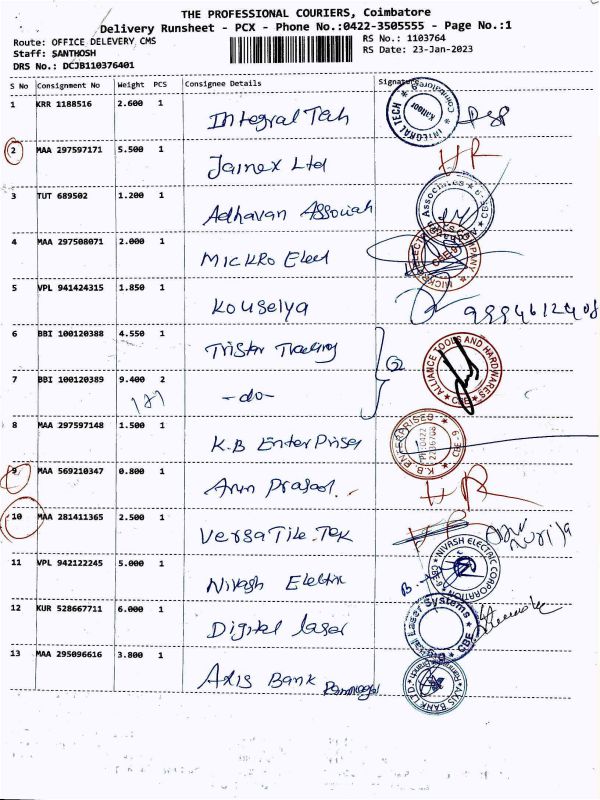 THE PROFESSIONAL COURIERS, Coimbatore
Delivery Runsheet - PCX - Phone No.:0422-3505555 - Page No.:1
Route: OFFICE DELEVERY CMS
RS No.: 1103764
Staff: SANTHOSH
RS Date: 23-Jan-2023
DRS No.: DCJB110376401
S No Consignment No Weight PCS Consignee Details Signature
1 KRR 1188516 2.600 1 Integral Tech
INTEGRAL TECH
2 MAA 297597171 5.500 1 Jainex Ltd HR
3 TUT 689502 1.200 1 Adhavan Associah
Associates
4 MAA 297508071 2.000 1 Mickro Elect
5 VPL 941424315 1.850 1 Kouselya
6 BBI 100120388 4.550 1 Tristar Trading
2
ALLIANCE TOOLS AND HARDWARES
CBE
7 BBI 100120389 9.400 2 -do-
8 MAA 297597148 1.500 1 K.B Enterprises
K.B. ENTERPRISES
9 MAA 569210347 0.800 1 Arun Prasad. HR
10 MAA 281411365 2.500 1 Versatile.Tek HR
11 VPL 942122245 5.000 1 Nivash Electric
NIVASH ELECTRIC CORPORATION
12 KUR 528667711 6.000 1 Digital laser
Digital Laser Systems
CBE
13 MAA 295096616 3.800 1 Axis Bank
AXIS BANK LTD.